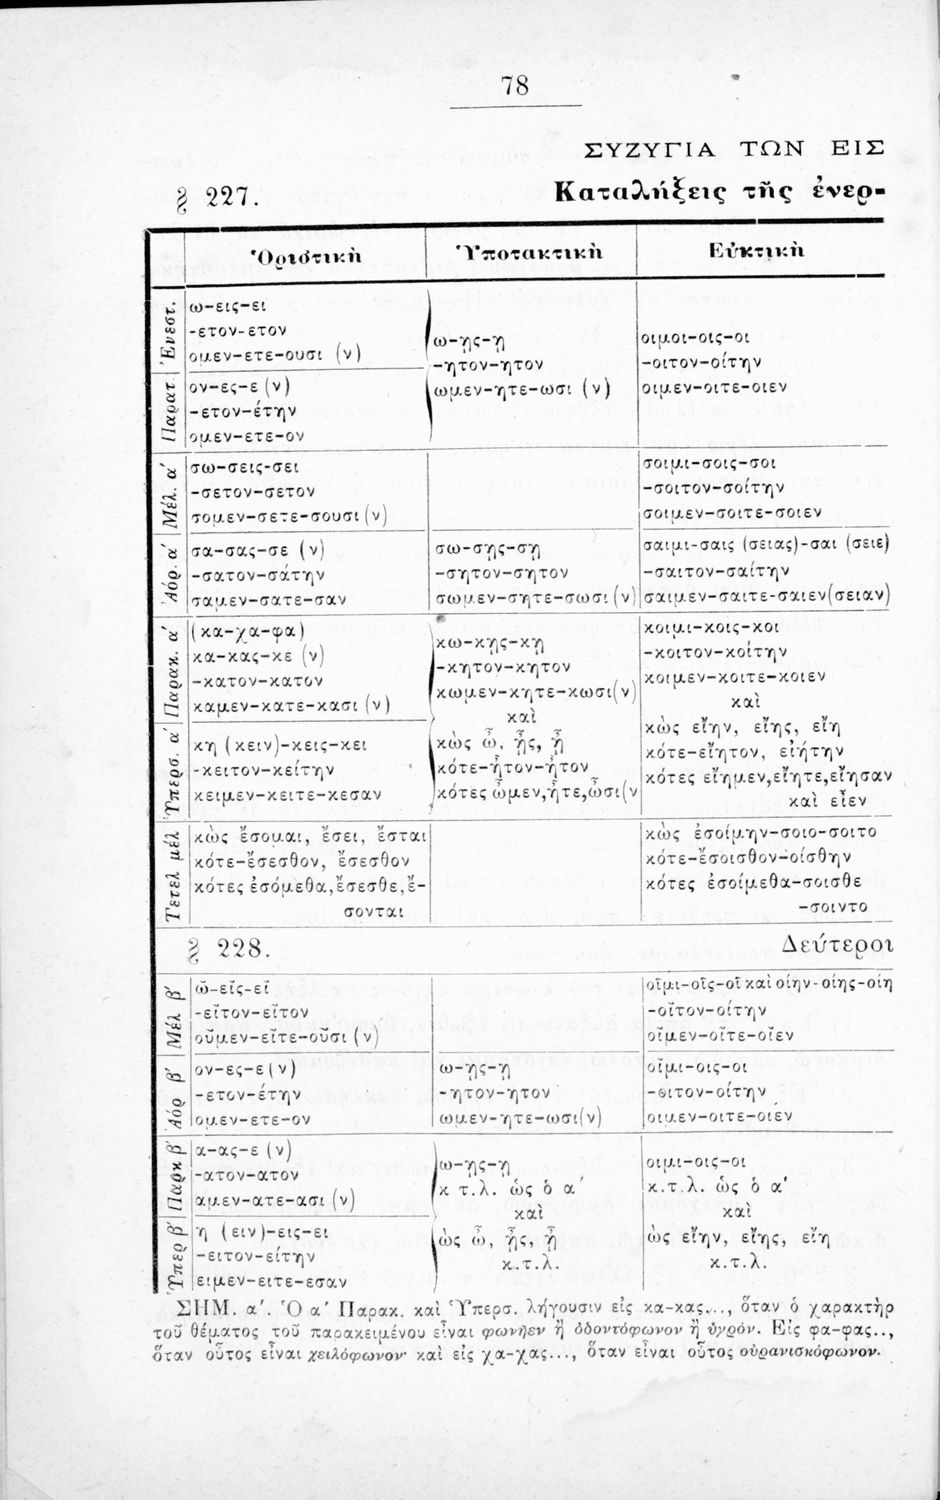 78
ΣΥΖΥΓΙΑ ΤΩΝ ΕΙΣ
§ 227. Καταλήξεις τῆς ἐνερ-
Ὁριστικὴ Ὑποτακτικὴ Εὐκτικὴ
Ἐνεστ.
ω-εις-ει
-ετον-ετον
ομεν-ετε-ουσι (ν)
Παρατ.
ον-ες-ε (ν)
-ετον-έτην
ομεν-ετε-ον
ω-ῃς-ῃ
-ητον-ητον
ωμεν-ητε-ωσι (ν)
οιμοι-οις-οι
-οιτον-οίτην
οιμεν-οιτε-οιεν
Μέλ. α΄
σω-σεις-σει
-σετον-σετον
σομεν-σετε-σουσι (ν)
σοιμι-σοις-σοι
-σοιτον-σοίτην
σοιμεν-σοιτε-σοιεν
Ἀόρ. α΄
σα-σας-σε (ν)
-σατον-σάτην
σαμεν-σατε-σαν
σω-σῃς-σῃ
-σητον-σητον
σωμεν-σητε-σωσι (ν)
σαιμι-σαις (σειας)-σαι (σειε)
-σαιτον-σαίτην
σαιμεν-σαιτε-σαιεν(σειαν)
Παρακ. α΄
(κα-χα-φα)
κα-κας-κε (ν)
-κατον-κατον
καμεν-κατε-κασι (ν)
Ὑπερσ. α΄
κη (κειν)-κεις-κει
-κειτον-κείτην
κειμεν-κειτε-κεσαν
κω-κῃς-κῃ
-κητον-κητον
κωμεν-κητε-κωσι(ν)
καὶ
κὼς ὦ, ᾖς, ᾖ
κότε-ἦτον-ἦτον
κότες ὦμεν,ἦτε,ὦσι(ν
κοιμι-κοις-κοι
-κοιτον-κοίτην
κοιμεν-κοιτε-κοιεν
καὶ
κὼς εἴην, εἴης, εἴη
κότε-εἴητον, εἰήτην
κότες εἴημεν,εἴητε,εἴησαν
καὶ εἶεν
Τετελ μέλ
κὼς ἔσομαι, ἔσει, ἔσται
κότε-ἔσεσθον, ἔσεσθον
κότες ἐσόμεθα,ἔσεσθε,ἔ-
σονται
κὼς ἐσοίμην-σοιο-σοιτο
κότε-ἔσοισθον-οίσθην
κότες ἐσοίμεθα-σοισθε
-σοιντο
§ 228. Δεύτεροι
Μέλ β΄
ῶ-εῖς-εῖ
-εῖτον-εῖτον
οῦμεν-εῖτε-οῦσι (ν)
οῖμι-οῖς-οῖ καὶ οίην-οίης-οίη
-οῖτον-οίτην
οῖμεν-οῖτε-οῖεν
Ἀόρ β΄
ον-ες-ε (ν)
-ετον-έτην
ομεν-ετε-ον
ω-ῃς-ῃ
-ητον-ητον
ωμεν-ητε-ωσι(ν)
οῖμι-οις-οι
-οιτον-οίτην
οιμεν-οιτε-οιεν
Παρκ β΄
α-ας-ε (ν)
-ατον-ατον
αμεν-ατε-ασι (ν)
Ὑπερ β΄
η (ειν)-εις-ει
-ειτον-είτην
ειμεν-ειτε-εσαν
ω-ῃς-ῃ
κ τ.λ. ὡς ὁ α΄
καὶ
ὼς ὦ, ᾖς, ᾖ
κ.τ.λ.
οιμι-οις-οι
κ.τ.λ. ὡς ὁ α΄
καὶ
ὼς εἴην, εἴης, εἴη
κ.τ.λ.
ΣΗΜ. α΄. Ὁ α΄ Παρακ. καὶ Ὑπερσ. λήγουσιν εἰς κα-κας..., ὅταν ὁ χαρακτὴρ
τοῦ θέματος τοῦ παρακειμένου εἶναι φωνῆεν ἢ ὀδοντόφωνον ἢ ὑγρόν. Εἰς φα-φας..,
ὅταν οὗτος εἶναι χειλόφωνον· καὶ εἰς χα-χας..., ὅταν εἶναι οὗτος οὐρανισκόφωνον.